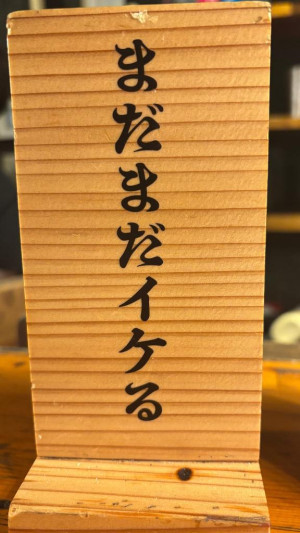 まだまだイケる